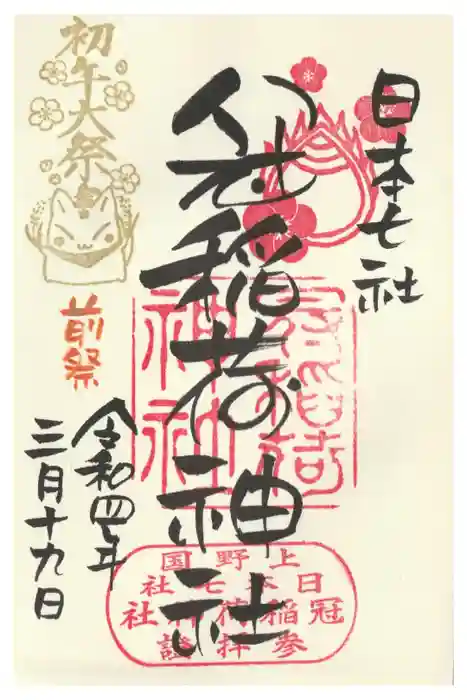 日本七社
冠稲荷神社
冠稲荷
神社
上野国
日本七社
冠稲荷神社
參拝證
初午大祭
前祭
令和四年
三月十九日